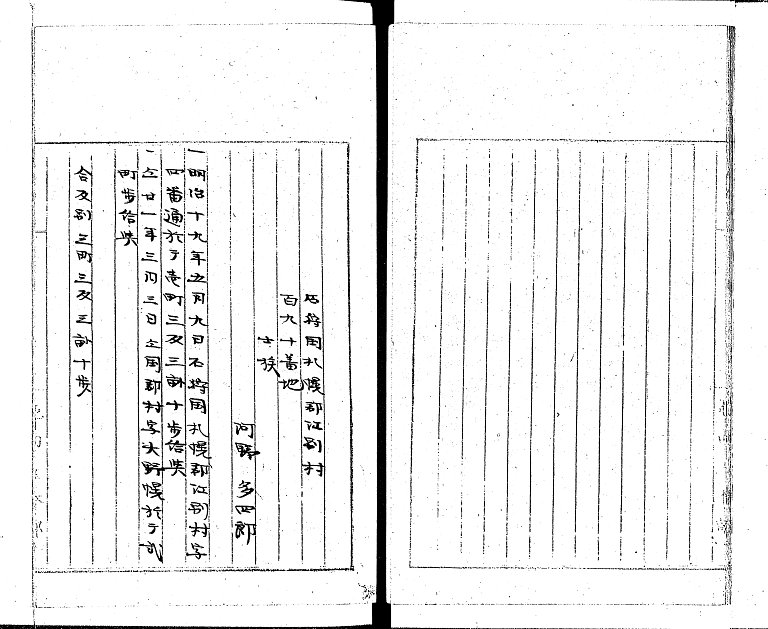 石狩国札幌郡江別村
百九十番地
士族
河野多四郎
一明治十九年五月九日石狩国札幌郡江別村字
四番通於テ壱町三反三畝十歩給与
一仝廿一年三月三日仝国郡村字大野幌於テ弐
町歩給与
合反別三町三反三畝十歩